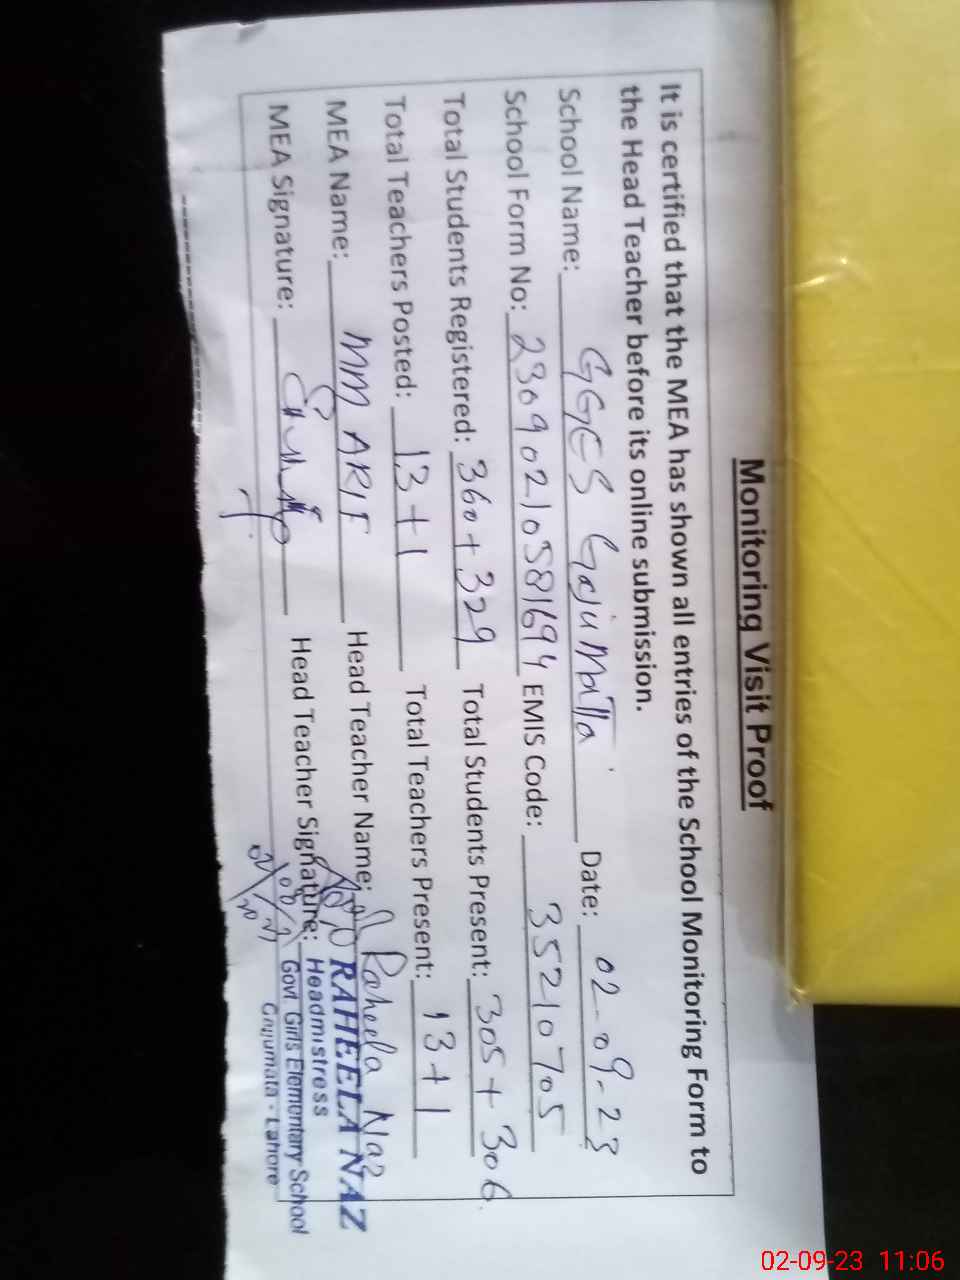 Monitoring Visit Proof
It is certified that the MEA has shown all entries of the School Monitoring Form to
the Head Teacher before its online submission.
School Name: GGES Gaju Matta Date: 02-09-23
School Form No: 23090210581694 EMIS Code: 35210705
Total Students Registered: 360+329 Total Students Present: 305+306
Total Teachers Posted: 13+1 Total Teachers Present: 13+1
MEA Name: MM ARIF Head Teacher Name: Raheela Naz
MEA Signature: Head Teacher Signature:
RAHEELA NAZ
Headmistress
Govt. Girls Elementary School
Gajjumata - Lahore
02-09-23 11:06